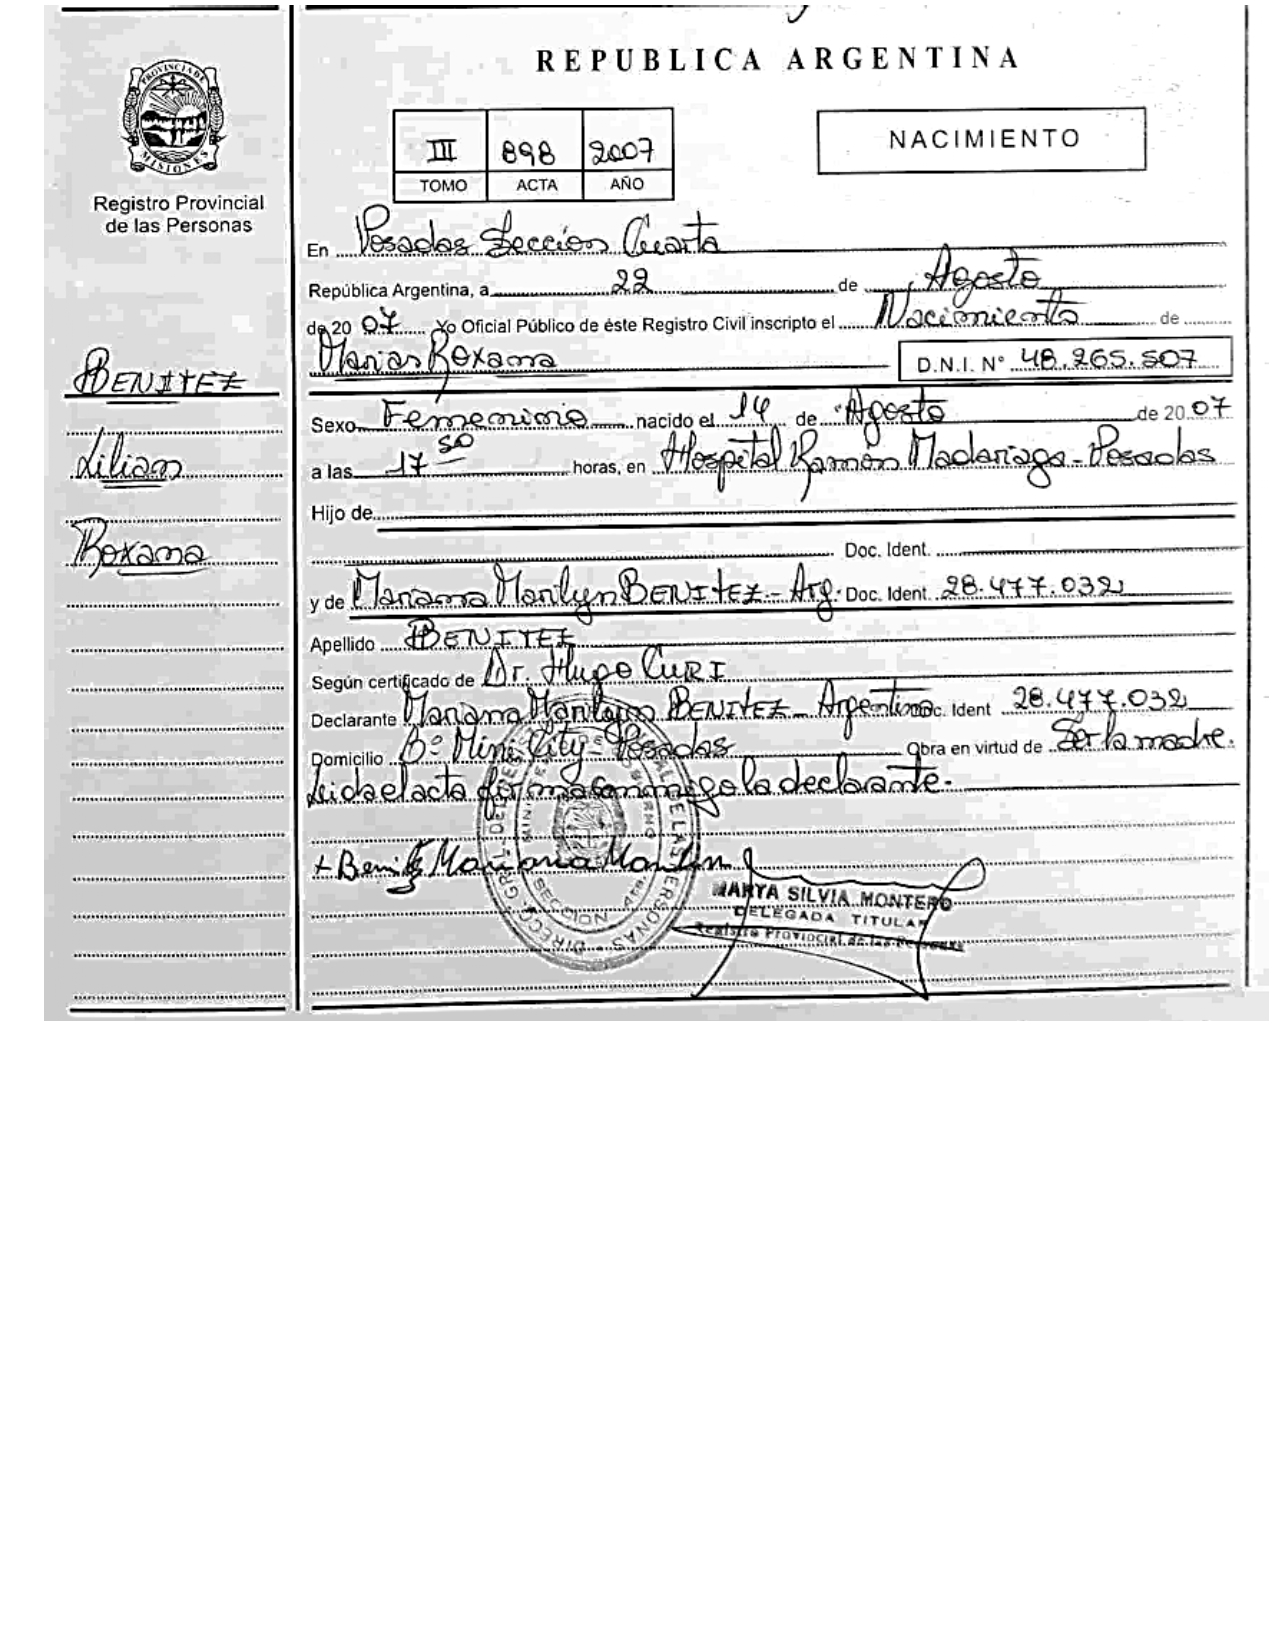 REPUBLICA ARGENTINA
PROVINCIA DE
MISIONES
Registro Provincial
de las Personas
III 898 2007
TOMO ACTA AÑO
NACIMIENTO
BENITEZ
Lilian
Roxana
En Posadas Sección Cuarta
República Argentina, a 22 de Agosto
de 20 07 Yo Oficial Público de éste Registro Civil inscripto el Nacimiento de
Roxana D.N.I. N° 48.265.507
Sexo Femenino nacido el 14 de Agosto de 20 07
a las 17 50 horas, en Hospital Ramón Madariaga - Posadas
Hijo de
Doc. Ident.
y de Mariana Marilyn BENITEZ - Arg. Doc. Ident. 28.477.032
Apellido BENITEZ
Según certificado de Dr. Hugo CURI
Declarante Mariana Marilyn BENITEZ - Argentina Doc. Ident 28.477.032
Domicilio B° Mini City Posadas Obra en virtud de Ser la madre.
Leida el acta firma conmigo la declarante.
+ Benitez Mariana
MARTA SILVIA MONTERO
DELEGADA TITULAR
Registro Provincial de las Personas